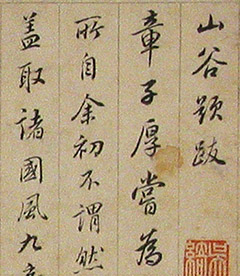 山谷題跋
章子厚嘗為
所自余初不謂然
盖取諸國風九